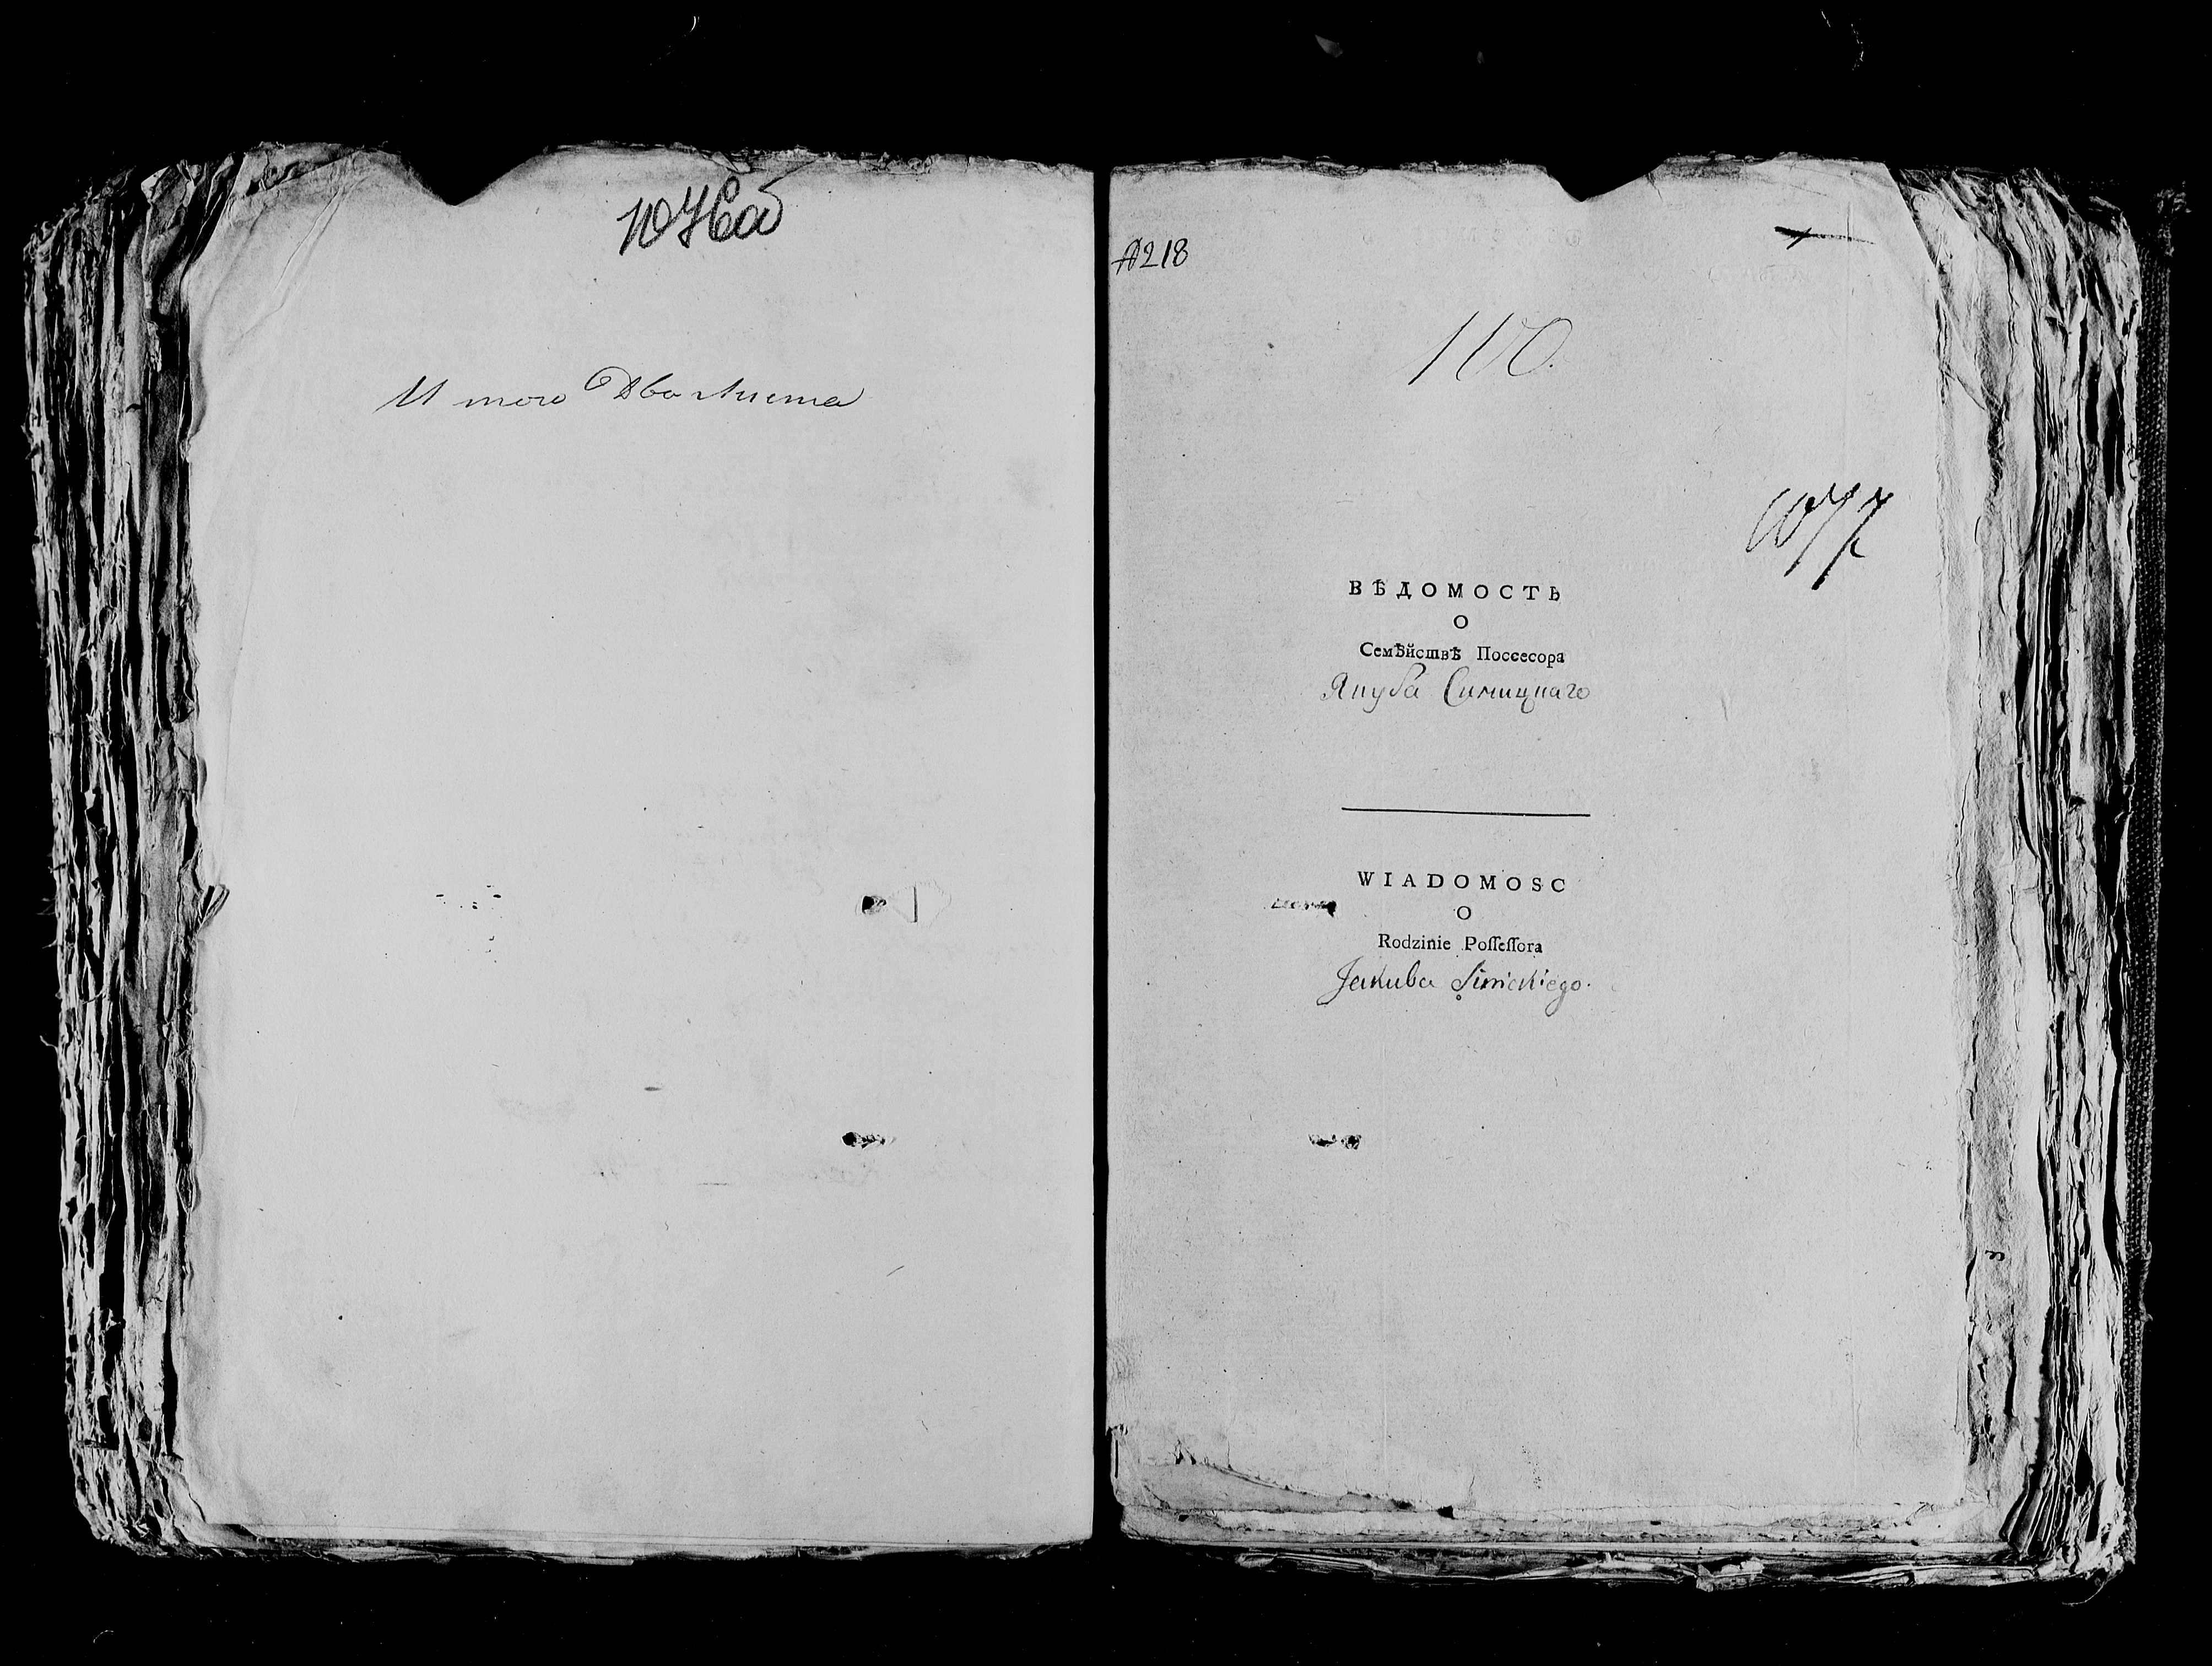 1076об
Итого Два листа
№218
110.
1077
ВѢДОМОСТЬ
О
Семѣйствѣ Поссесора
Якуба Симицкаго
WIADOMOSC
O
Rodzinie Poſſeſſora
Jakuba Simickiego.